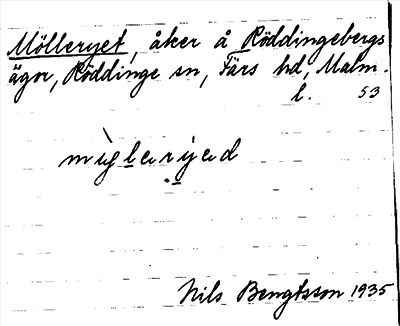 Mölleryet, åker å Röddingebergs
ägor, Röddinge sn, Färs hd, Malm.
l. 53
mìglerijed
Nils Bengtsson 1935